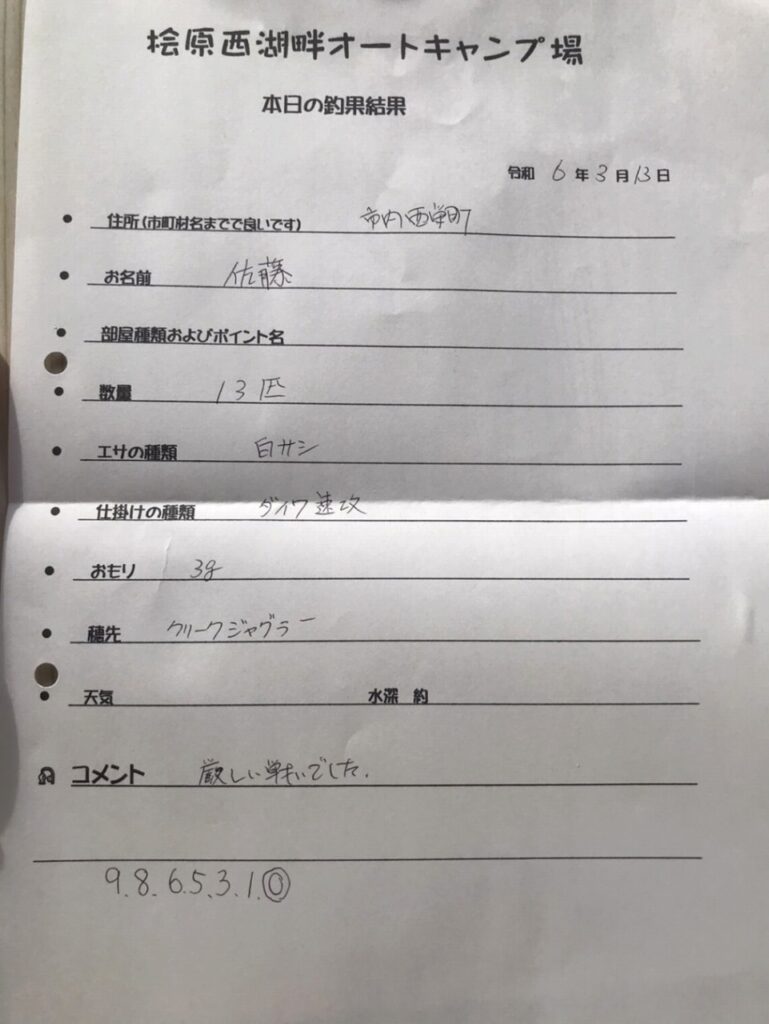 桧原西湖畔オートキャンプ場
本日の釣果結果
令和 6 年 3 月 13 日
住所(市町材名までで良いです) 市内西栄町
お名前 佐藤
部屋種類およびポイント名
数量 13匹
エサの種類 白サシ
仕掛けの種類 ダイワ速攻
おもり 3g
穂先 クリークジャグラー
天気 水深 約
コメント 厳しい戦いでした.
9.8.6.5.3.1.⓪